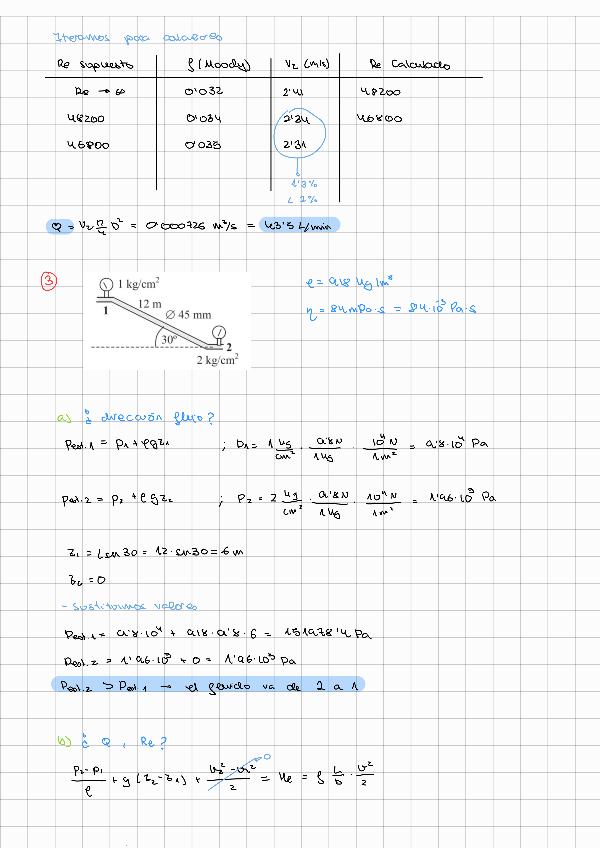 Iteramos para calcularlo
Re supuesto f (Moody) V2 (m/s) Re calculado
Re → ∞ 0'032 2'41 48200
48200 0'034 2'34 46800
46800 0'035 2'31
1'3%
< 2%
Q = V2 π/4 D² = 0'000726 m³/s = 43'5 L/min
3
1 kg/cm²
12 m
Ø 45 mm
1
30º
2
2 kg/cm²
ρ = 918 kg/m³
η = 84 mPa·s = 84·10⁻³ Pa·s
a) ¿ dirección flujo?
Pest.1 = P1 + ρgz1 ; P1 = 1 kg/cm² · 9'8 N/1 kg · 10⁴ N/1 m² = 9'8·10⁴ Pa
Pest.2 = P2 + ρgz2 ; P2 = 2 kg/cm² · 9'8 N/1 kg · 10⁴ N/1 m² = 1'96·10⁵ Pa
z1 = L sen 30 = 12 · sen 30 = 6 m
z2 = 0
- Sustituimos valores
Pest.1 = 9'8·10⁴ + 918·9'8·6 = 151978'4 Pa
Pest.2 = 1'96·10⁵ + 0 = 1'96·10⁵ Pa
Pest.2 > Pest.1 → el fluido va de 2 a 1
b) ¿ Q , Re ?
(P2 - P1)/ρ + g (z2 - z1) + (v2² - v1²)/2 →0 = He = f L/D · v²/2